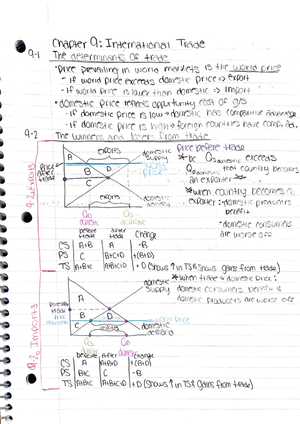 Chapter 9: International Trade
9-1 The determinants of trade
• price prevailing in world markets is the world price
- if world price exceeds domestic price ⇒ export
- if world price is lower than domestic ⇒ import
• domestic price reflects opportunity cost of g&s
- if domestic price is low → domestic has comparative advantage
- if domestic price is high → foreign countries have
9-2 The winners and losers from trade
exports
price before trade
domestic supply
world price
A
B
C
D
domestic demand
Qd domestic
Qs domestic
* bc Qs domestic exceeds
Qd domestic that country becomes
an exporter
* when country becomes a
exporter: domestic producers
benefit
• domestic consumers
are worse off
9-2a Exports
before trade
after trade
Change
CS A+B A -B
PS C B+C+D +(B+D)
TS A+B+C A+B+C+D +D (Shows ↑ in TS & Shows gains from trade)
* when trade + domestic price:
domestic consumers benefit &
domestic producers are worse off
domestic supply
A
B
D
C
world price
domestic demand
exports
9-2b Imports
before trade
after trade
change
CS A A+B+D +(B+D)
PS B+C C -B
TS A+B+C A+B+C+D +D (Shows ↑ in TS & gains from trade)